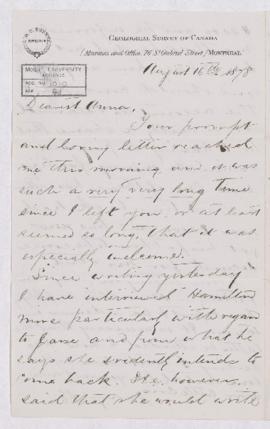 GEOLOGICAL SURVEY OF CANADA
(Museum and Office, 76 St. Gabriel Street,) MONTREAL
August 16th 1878
McGILL UNIVERSITY
ARCHIVES
ACC. NO.
REF.
Dearest Anna,
Your prompt
and loving letter reached
me this morning and it was
such a very very long time
since I left you, or at least
seemed so long, that it was
especially welcome.
Since writing yesterday
I have interviewed Hamilton
more particularly with regard
to Jane and from what he
says she evidently intends to
come back. She, however,
said that she would write